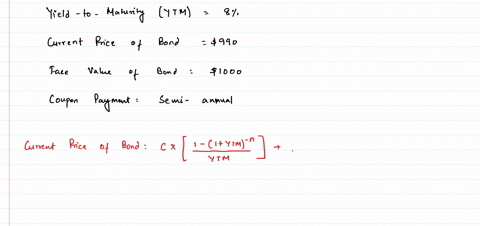 Yield-to-Maturity (YTM) = 8%
Current Price of Bond = $990
Face Value of Bond: $1000
Coupon Payment: Semi-annual
Current Price of Bond: C x [ (1-(1+YTM)^-n) / YTM ] + .